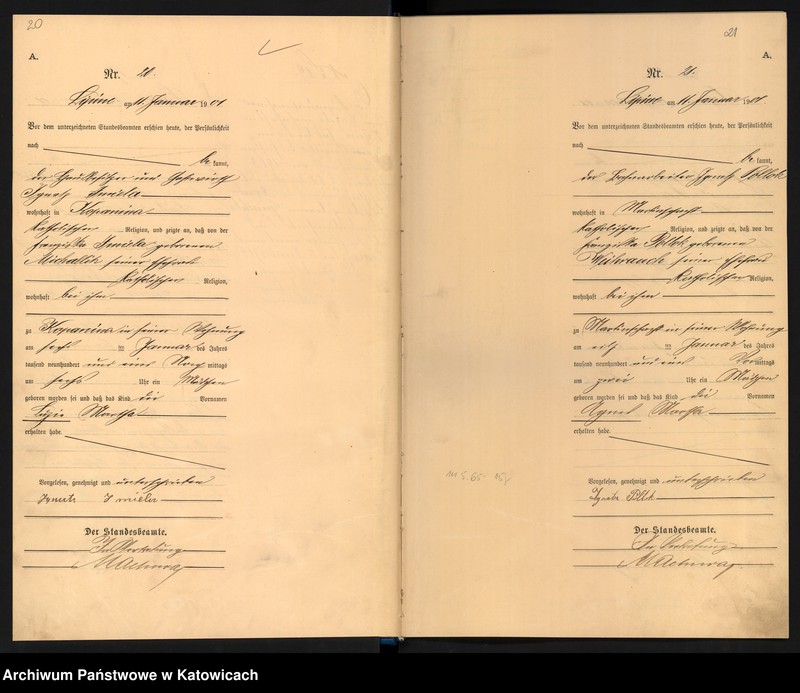 20
A.
Nr. 20.
Lipine am 11. Januar 1901
Vor dem unterzeichneten Standesbeamten erschien heute, der Persönlichkeit
nach
be kannt,
der Hausbesitzer und Gastwirth
Ignatz Imiela
wohnhaft in Kopanina
katholischer Religion, und zeigte an, daß von der
Franziska Imiela geborenen
Michallik seiner Ehefrau
katholischer Religion,
wohnhaft bei ihm
zu Kopanina in seiner Wohnung
am sechs ten Januar des Jahres
tausend neunhundert und eins Nach mittags
um sechs Uhr ein Mädchen
geboren worden sei und daß das Kind die Vornamen
Luzie Martha
erhalten habe.
Vorgelesen, genehmigt und unterschrieben
Ignatz Imiela
Der Standesbeamte.
In Vertretung
21
A.
Nr. 21.
Lipine am 11. Januar 1901.
Vor dem unterzeichneten Standesbeamten erschien heute, der Persönlichkeit
nach
be kannt,
der Ignatz Pollok
wohnhaft in Martinschacht
katholischer Religion, und zeigte an, daß von der
Franziska Pollok geborene
Weihrauch seiner Ehefrau
katholischer Religion,
wohnhaft bei ihm
zu Martinschacht in seiner Wohnung
am elf ten Januar des Jahres
tausend neunhundert und eins Vormittags
um zwei Uhr ein Mädchen
geboren worden sei und daß das Kind die Vornamen
Agnes Martha
erhalten habe.
Vorgelesen, genehmigt und unterschrieben
Pollok
Der Standesbeamte.
In Vertretung
Archiwum Państwowe w Katowicach